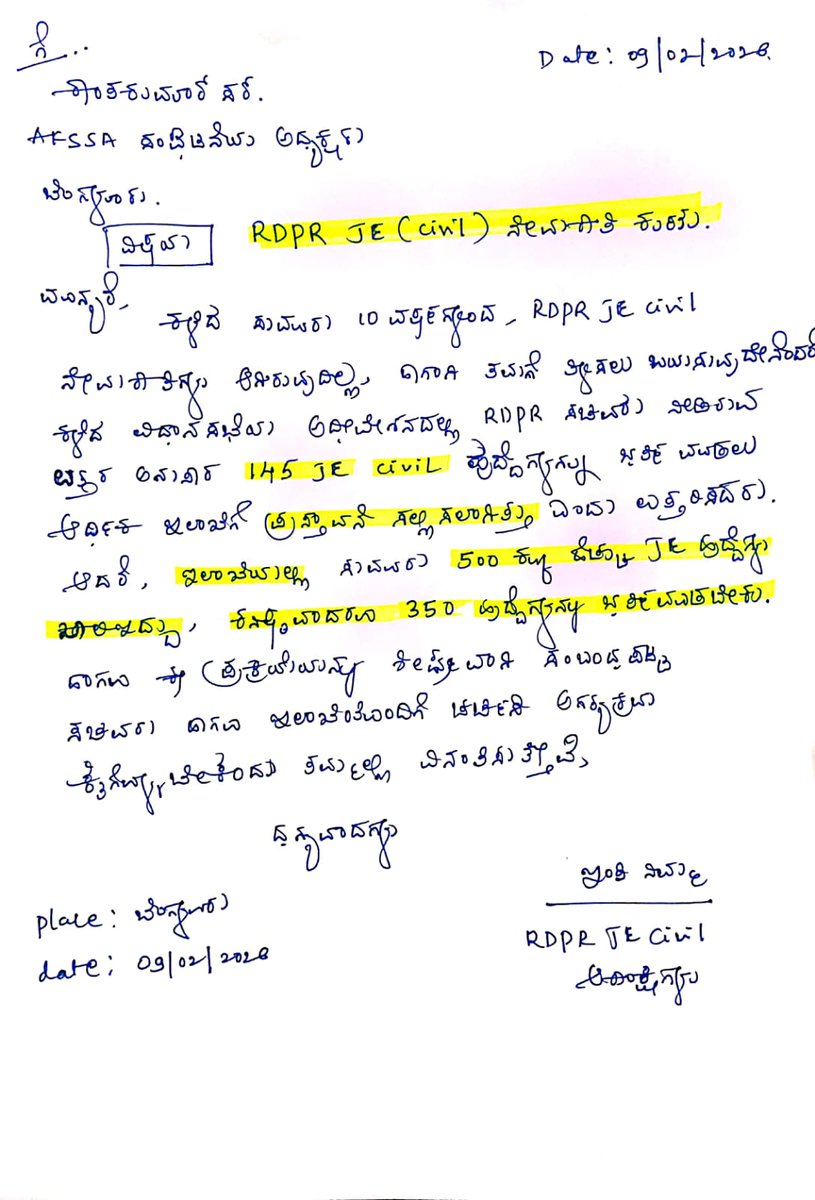 ಗೆ...
Date: 09/02/2026.
ಕಾಂತಕುಮಾರ್ ಸರ್.
AKSSA ಸಂಘಟನೆಯ ಅಧ್ಯಕ್ಷರು
ಬೆಂಗಳೂರು.
ವಿಷಯ RDPR JE (civil) ನೇಮಕಾತಿ ಕುರಿತು.
ಮಾನ್ಯರೆ,
ಕಳೆದ ಸುಮಾರು 10 ವರ್ಷಗಳಿಂದ, RDPR JE civil
ನೇಮಕಾತಿಗಳು ಆಗಿರುವುದಿಲ್ಲ, ಹಾಗಾಗಿ ತಮಗೆ ತಿಳಿಸಲು ಬಯಸುವುದೇನೆಂದರೆ
ಕಳೆದ ವಿಧಾನಸಭೆಯ ಅಧಿವೇಶನದಲ್ಲಿ RDPR ಸಚಿವರು ನೀಡಿರುವ
ಉತ್ತರ ಅನುಸಾರ 145 JE civil ಹುದ್ದೆಗಳನ್ನು ಭರ್ತಿ ಮಾಡಲು
ಆರ್ಥಿಕ ಇಲಾಖೆಗೆ ಪ್ರಸ್ತಾವನೆ ಸಲ್ಲಿಸಲಾಗಿತ್ತು ಎಂದು ಉತ್ತರಿಸಿದರು.
ಆದರೆ, ಇಲಾಖೆಯಲ್ಲಿ ಸುಮಾರು 500 ಕ್ಕೂ ಹೆಚ್ಚು JE ಹುದ್ದೆಗಳು
ಖಾಲಿಇದ್ದು, ಕನಿಷ್ಠವಾದರೂ 350 ಹುದ್ದೆಗಳನ್ನು ಭರ್ತಿ ಮಾಡಬೇಕು.
ಹಾಗೂ ಈ ಪ್ರಕ್ರಿಯೆಯನ್ನು ಶೀಘ್ರವಾಗಿ ಸಂಬಂಧ ಪಟ್ಟ
ಸಚಿವರು ಹಾಗೂ ಇಲಾಖೆಯೊಂದಿಗೆ ಚರ್ಚಿಸಿ ಅಗತ್ಯಕ್ರಮ
ಕೈಗೊಳ್ಳಬೇಕೆಂದು ತಮ್ಮಲ್ಲಿ ವಿನಂತಿಸುತ್ತೇವೆ,
ಧನ್ಯವಾದಗಳು
ಇಂತಿ ನಿಮ್ಮ
place: ಬೆಂಗಳೂರು
RDPR JE Civil
date: 09/02/2026
ಆಕಾಂಕ್ಷಿಗಳು